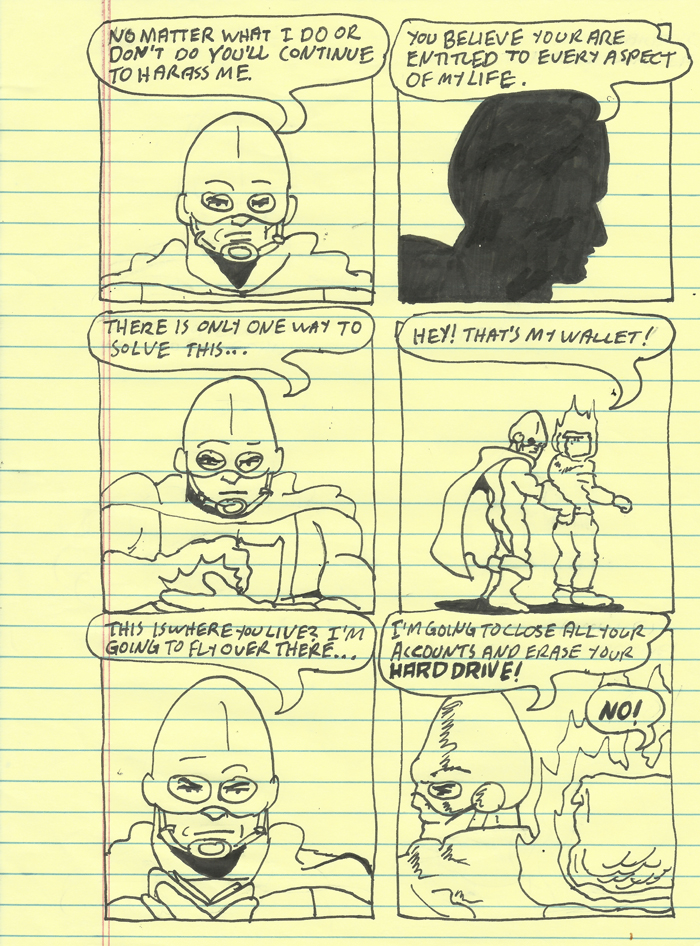 NO MATTER WHAT I DO OR
DON'T DO YOU'LL CONTINUE
TO HARASS ME.
YOU BELIEVE YOUR ARE
ENTITLED TO EVERY ASPECT
OF MY LIFE.
THERE IS ONLY ONE WAY TO
SOLVE THIS...
HEY! THAT'S MY WALLET!
THIS IS WHERE YOU LIVE? I'M
GOING TO FLY OVER THERE...
I'M GOING TO CLOSE ALL YOUR
ACCOUNTS AND ERASE YOUR
HARD DRIVE!
NO!